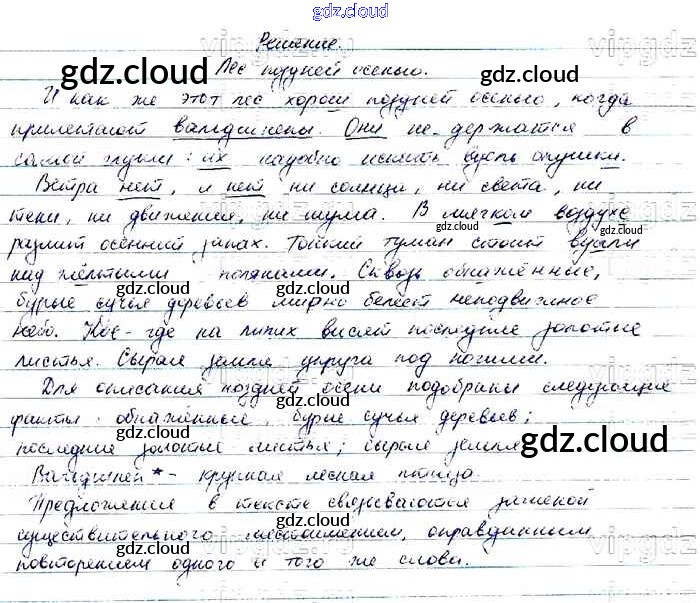 gdz.cloud
Решение.
Лес поздней осенью.
И как же этот лес хорош поздней осенью, когда
прилетают вальдшнепы. Они не держатся в
самой глуши: их надобно искать вдоль опушки.
Ветра нет, и нет ни солнца, ни света, ни
тени, ни движения, ни шума. В мягком воздухе
разлит осенний запах. Тонкий туман стоит вдали
над жёлтыми полянами. Сквозь обнажённые,
бурые сучья деревьев мирно белеет неподвижное
небо. Кое-где на липах висят последние золотые
листья. Сырая земля упруга под ногами.
Для описания поздней осени подобраны следующие
факты: обнажённые, бурые сучья деревьев;
последние золотые листья; сырая земля
Вальдшнеп* - крупная лесная птица.
Предложения в тексте связываются заменой
существительного местоимением, оправданным
повторением одного и того же слова.